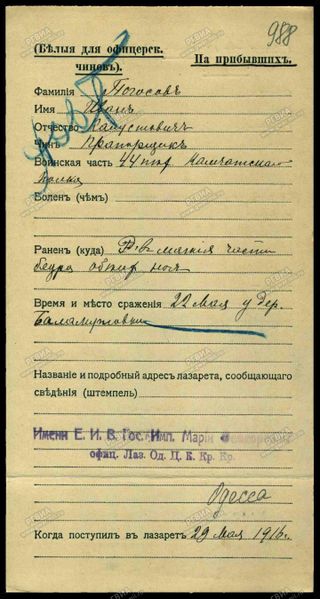 988
(Бѣлыя для офицерск. чиновъ).
На прибывшихъ.
Фамилія Погосовъ
Имя Иванъ
Отчество
Чинъ Прапорщикъ
Воинская часть 44 пѣх Камчатскаго
полка
Боленъ (чѣмъ)
Раненъ (куда) въ мягкія части
бедра
Время и мѣсто сраженія 22 Мая у дер.
Баламутовки
Названіе и подробный адресъ лазарета, сообщающаго
свѣдѣнія (штемпель)
Имени Е. И. В. Гос. Имп. Маріи
офиц. Лаз. Од. Ц. К. Кр. Кр.
Одесса
Когда поступилъ въ лазаретъ 29 Мая 1916 г.